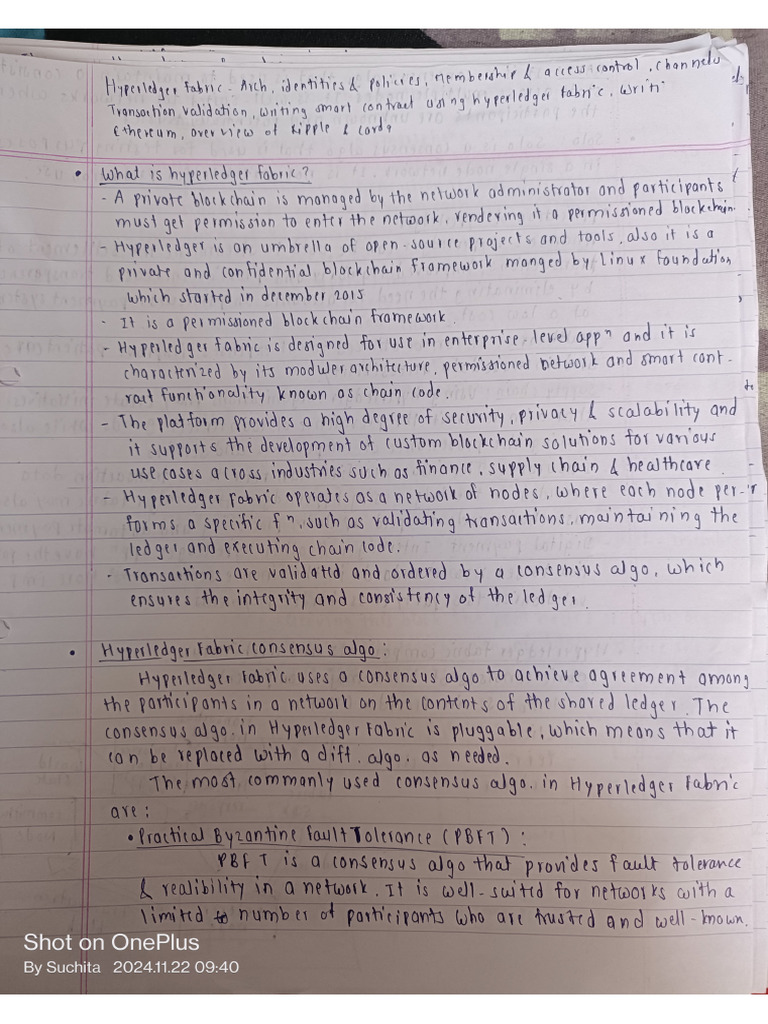 Hyperledger fabric. Arch, identities & policies, membership & access control, channels
Transaction validation, writing smart contract using hyperledger fabric, writi
Ethereum, overview of Ripple & Corda
• What is hyperledger fabric?
- A private blockchain is managed by the network administrator and participants
must get permission to enter the network, rendering it a permissioned blockchain.
- Hyperledger is an umbrella of open-source projects and tools, also it is a
private and confidential blockchain framework manged by Linux Foundation
which started in december 2015
- It is a permissioned blockchain framework.
- Hyperledger fabric is designed for use in enterprise-level appⁿ and it is
characterized by its moduler architecture, permissioned network and smart cont-
ract functionality known as chain code.
- The platform provides a high degree of security, privacy & scalability and
it supports the development of custom blockchain solutions for various
use cases across industries such as finance, supply chain & healthcare
- Hyperledger Fabric operates as a network of nodes, where each node per-
forms a specific fⁿ, such as validating transactions, maintaining the
ledger and executing chain code.
- Transactions are validated and ordered by a consensus algo, which
ensures the integrity and consistency of the ledger.
• Hyperledger Fabric consensus algo:
Hyperledger Fabric uses a consensus algo to achieve agreement among
the participants in a network on the contents of the shared ledger. The
consensus algo. in Hyperledger Fabric is pluggable, which means that it
can be replaced with a diff. algo. as needed.
The most commonly used consensus algo. in Hyperledger Fabric
are:
• Practical Byzantine Fault Tolerance (PBFT):
PBFT is a consensus algo that provides fault tolerance
& realibility in a network. It is well-suited for networks with a
limited number of participants who are trusted and well-known.
Shot on OnePlus
By Suchita 2024.11.22 09:40